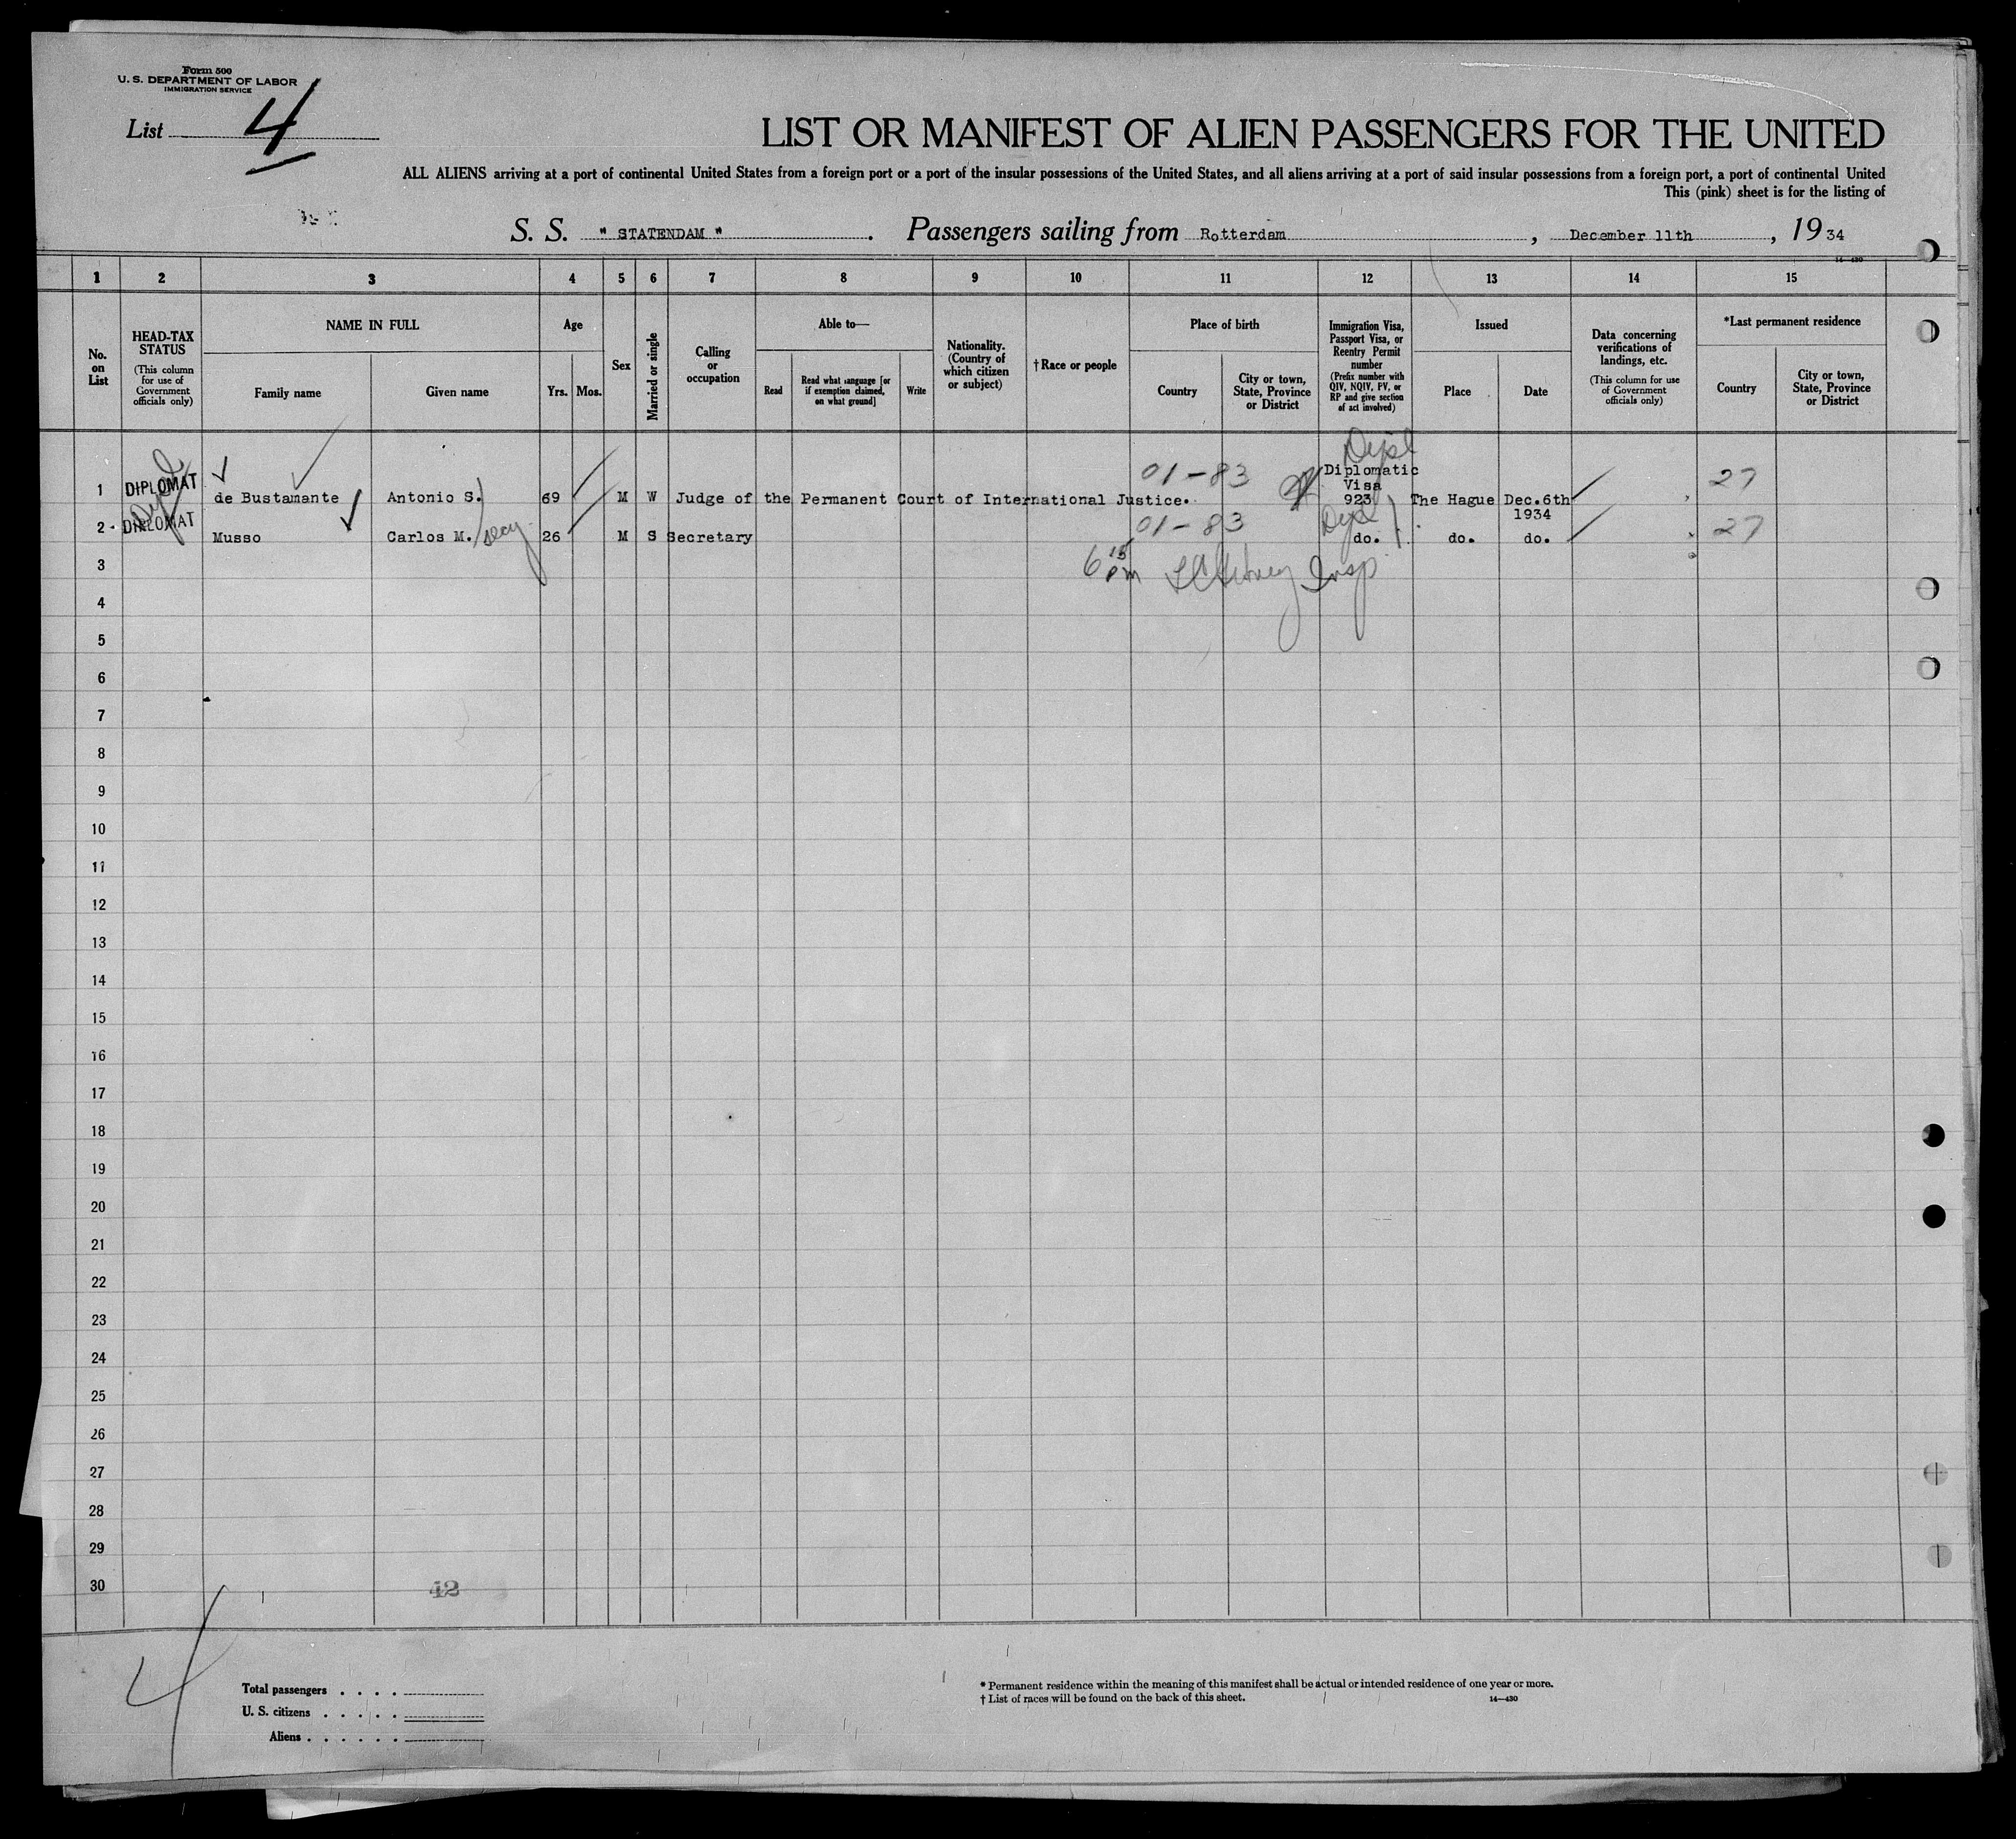 Form 500
U. S. DEPARTMENT OF LABOR
IMMIGRATION SERVICE
List 4
LIST OR MANIFEST OF ALIEN PASSENGERS FOR THE UNITED
ALL ALIENS arriving at a port of continental United States from a foreign port or a port of the insular possessions of the United States, and all aliens arriving at a port of said insular possessions from a foreign port, a port of continental United
This (pink) sheet is for the listing of
S. S. " STATENDAM " . Passengers sailing from Rotterdam , December 11th , 19 34
14—430
1 2 3 4 5 6 7 8 9 10 11 12 13 14 15
No. on List
HEAD-TAX STATUS
(This column for use of Government officials only)
NAME IN FULL
Family name
Given name
Age
Yrs. Mos.
Sex
Married or single
Calling or occupation
Able to—
Read
Read what language [or if exemption claimed, on what ground]
Write
Nationality. (Country of which citizen or subject)
†Race or people
Place of birth
Country
City or town, State, Province or District
Immigration Visa, Passport Visa, or Reentry Permit number
(Prefix number with QIV, NQIV, PV, or RP and give section of act involved)
Issued
Place
Date
Data concerning verifications of landings, etc.
(This column for use of Government officials only)
*Last permanent residence
Country
City or town, State, Province or District
Dipl
1 DIPLOMAT de Bustamante Antonio S. 69 M W Judge of the Permanent Court of International Justice. 01-83 Diplomatic Visa 923 The Hague Dec.6th 1934 27
2 DIPLOMAT Musso Carlos M. secy 26 M S Secretary 01-83 Dipl do. do. do. 27
3 6 15 PM Insp
4
5
6
7
8
9
10
11
12
13
14
15
16
17
18
19
20
21
22
23
24
25
26
27
28
29
30
42
4
Total passengers . . . .
U. S. citizens . . . . .
Aliens . . . . . .
* Permanent residence within the meaning of this manifest shall be actual or intended residence of one year or more.
† List of races will be found on the back of this sheet.
14—430